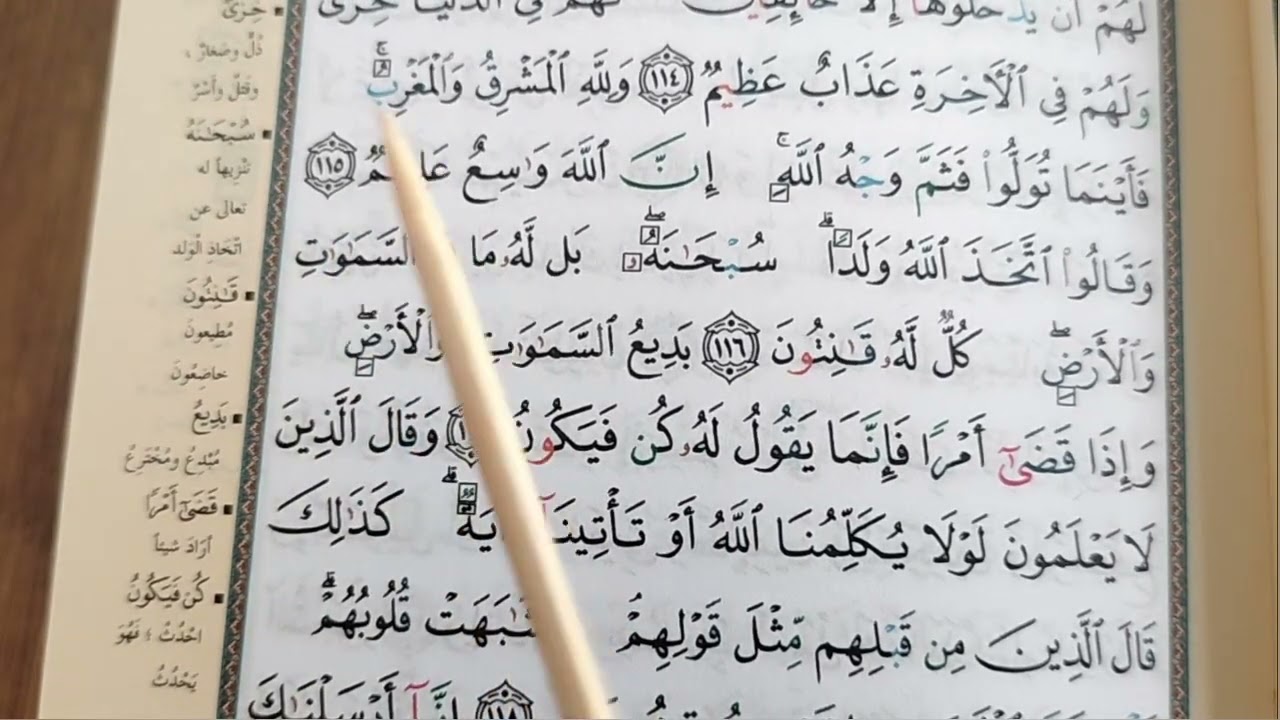 لَهُمْ أَن يَدْخُلُوهَا إِلَّا خَائِفِينَ لَهُمْ فِي الدُّنْيَا خِزْيٌ
وَلَهُمْ فِي ٱلْأَخِرَةِ عَذَابٌ عَظِيمٌ ١١٤ وَلِلَّهِ ٱلْمَشْرِقُ وَٱلْمَغْرِبُ ۚ
فَأَيْنَمَا تُوَلُّوا۟ فَثَمَّ وَجْهُ ٱللَّهِ ۚ إِنَّ ٱللَّهَ وَٰسِعٌ ١١٥
وَقَالُوا۟ ٱتَّخَذَ ٱللَّهُ وَلَدًا ۗ سُبْحَٰنَهُۥ ۖ بَل لَّهُۥ مَا ٱلسَّمَٰوَٰتِ
وَٱلْأَرْضِ ۖ كُلٌّ لَّهُۥ قَٰنِتُونَ ١١٦ بَدِيعُ ٱلسَّمَٰوَٰتِ وَٱلْأَرْضِ ۖ
وَإِذَا قَضَىٰٓ أَمْرًا فَإِنَّمَا يَقُولُ لَهُۥ كُن فَيَكُونُ وَقَالَ ٱلَّذِينَ
لَا يَعْلَمُونَ لَوْلَا يُكَلِّمُنَا ٱللَّهُ أَوْ تَأْتِينَآ ۗ كَذَٰلِكَ
قَالَ ٱلَّذِينَ مِن قَبْلِهِم مِّثْلَ قَوْلِهِمْ قُلُوبُهُمْ ۗ
١١٨ إِنَّآ أَرْسَلْنَٰكَ
خِزْيٌ
ذُلٌّ وصَغارٌ ،
وقَتلٌ وأَسْرٌ
سُبْحَٰنَهُ
تَنْزِيهاً له
تعالى عن
اتّخاذِ الوَلد
قَٰنِتُونَ
مُطِيعونَ
خاضِعُونَ
بَدِيعُ
مُبْدِعُ ومُخْتَرِعُ
قَضَىٰٓ أَمْرًا
أرَادَ شيئاً
كُن فَيَكُونُ
احْدُثْ ؛ فَهُوَ
يَحْدُثُ